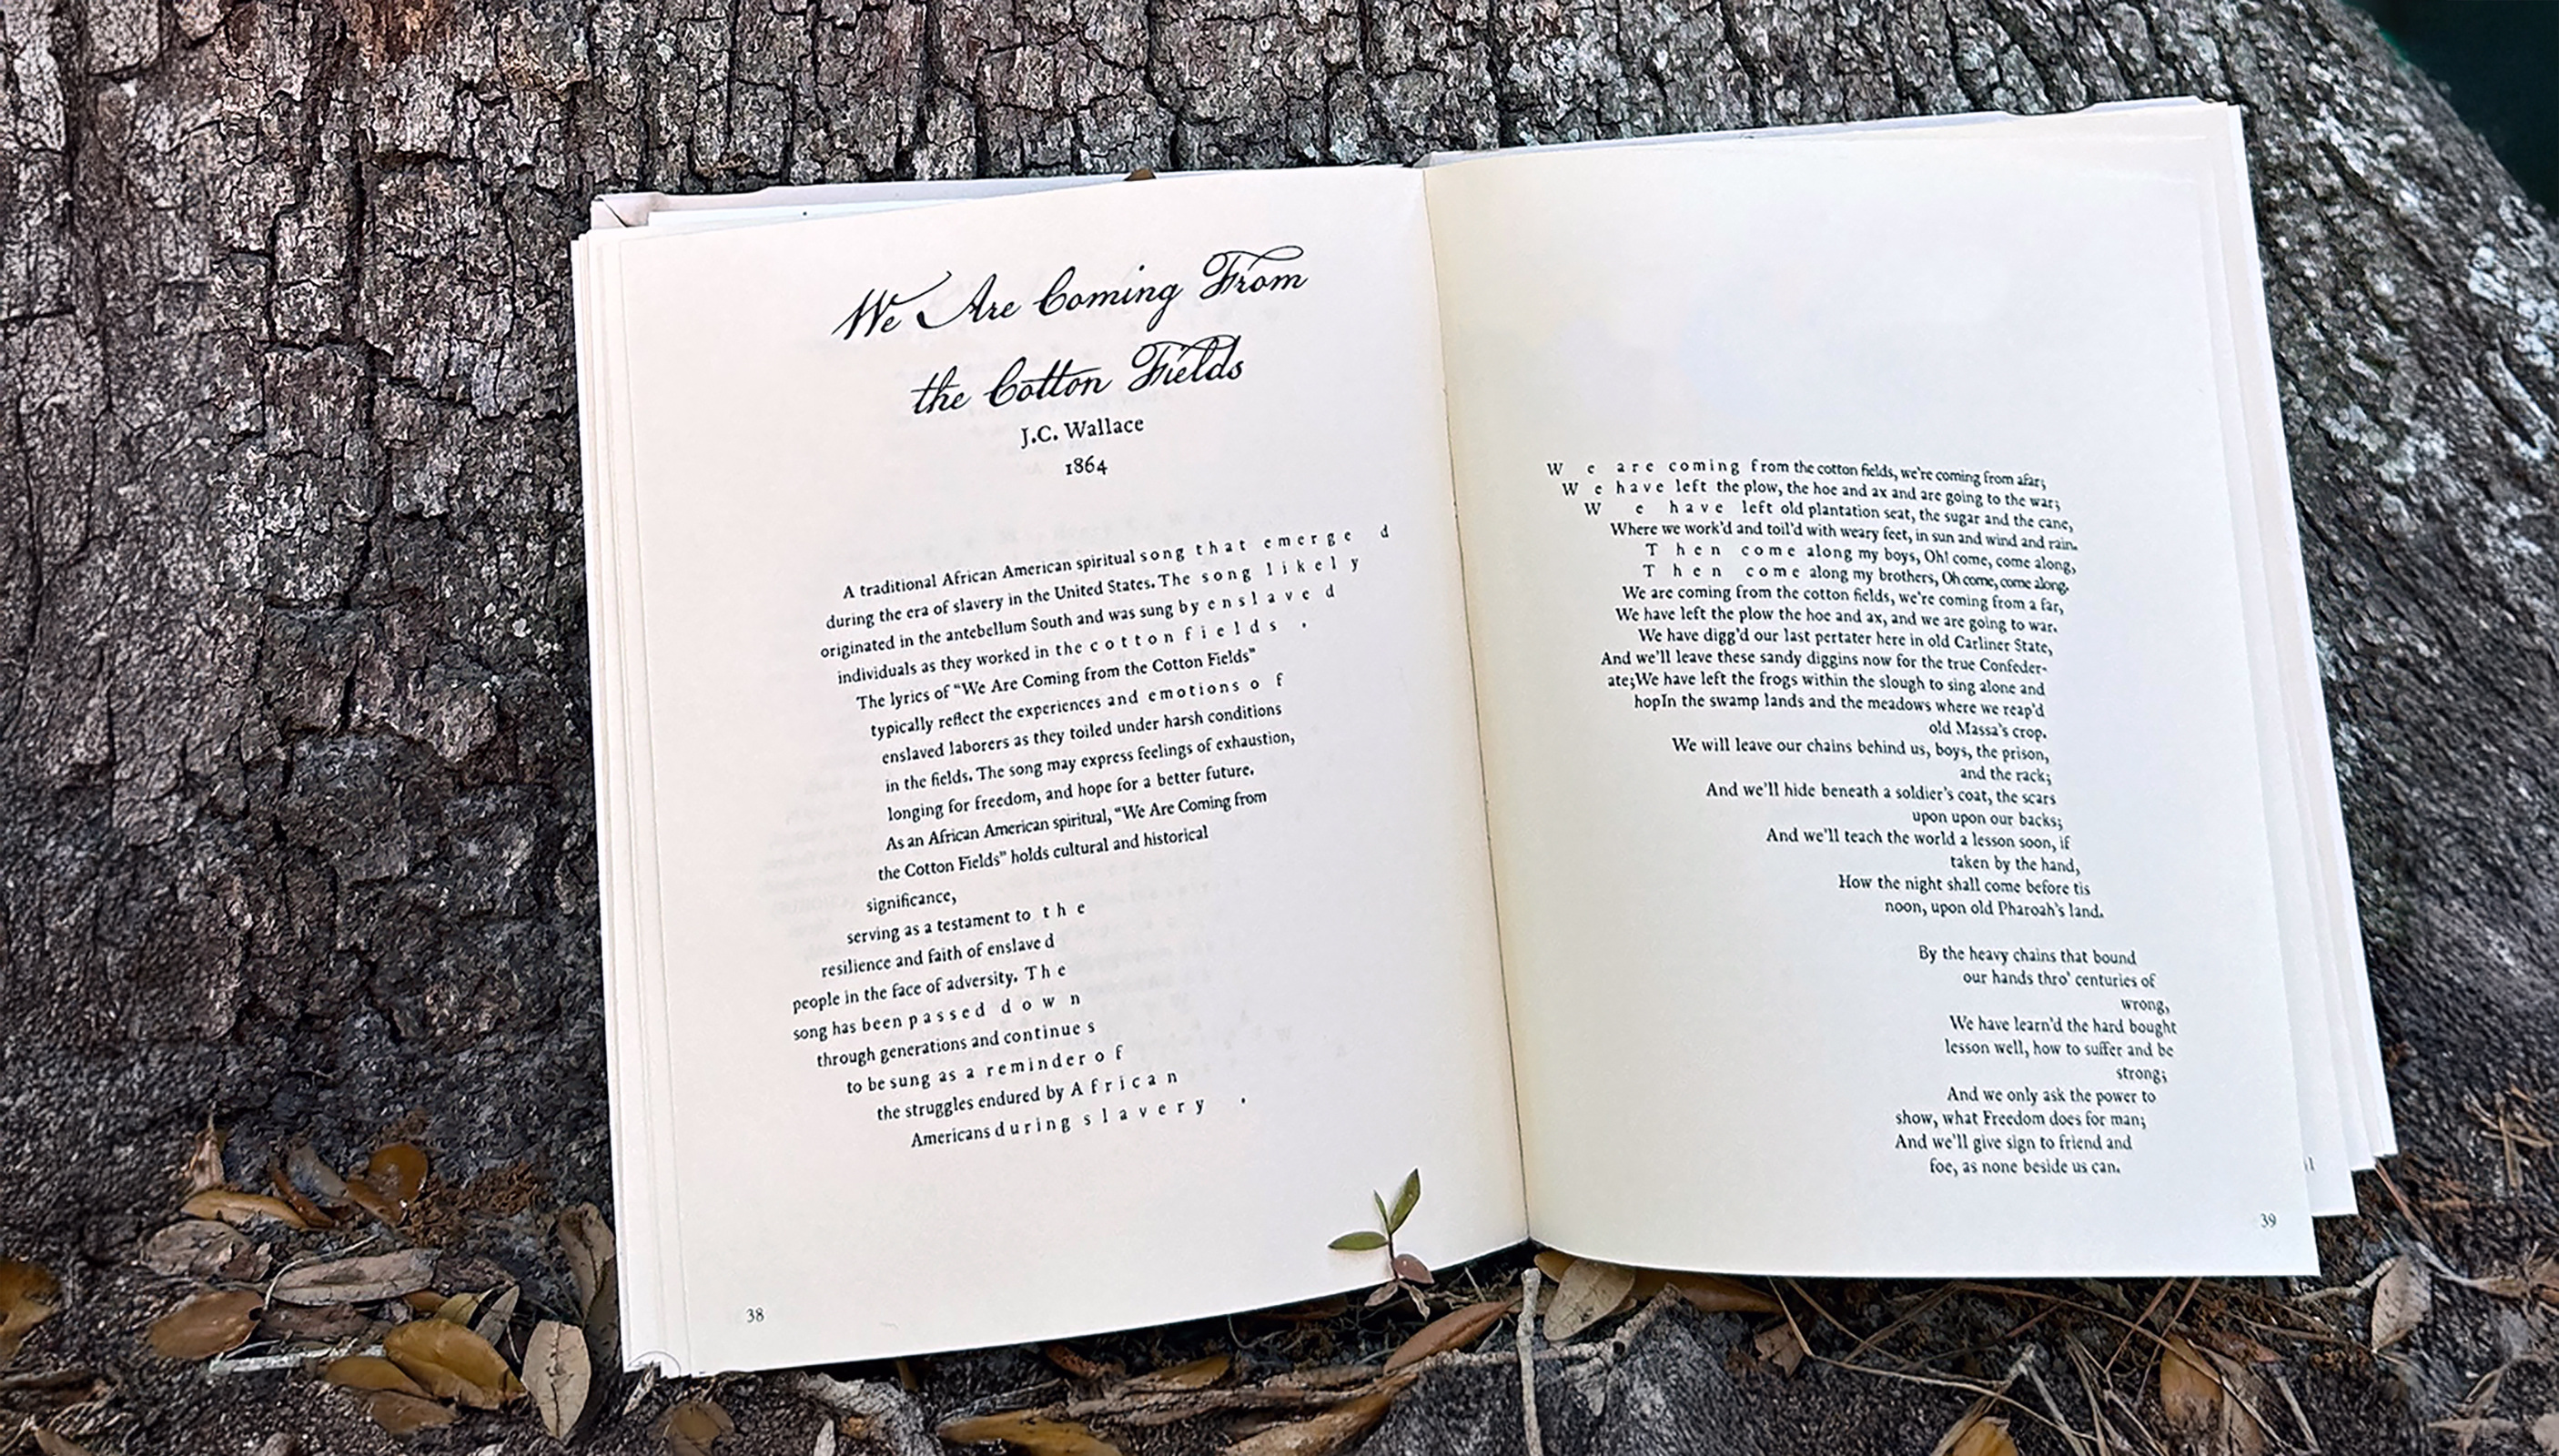 We Are Coming From
the Cotton Fields
J.C. Wallace
1864
A traditional African American spiritual song that emerged
during the era of slavery in the United States. The song likely
originated in the antebellum South and was sung by enslaved
individuals as they worked in the cotton fields.
The lyrics of “We Are Coming from the Cotton Fields”
typically reflect the experiences and emotions of
enslaved laborers as they toiled under harsh conditions
in the fields. The song may express feelings of exhaustion,
longing for freedom, and hope for a better future.
As an African American spiritual, “We Are Coming from
the Cotton Fields” holds cultural and historical
significance,
serving as a testament to the
resilience and faith of enslaved
people in the face of adversity. The
song has been passed down
through generations and continues
to be sung as a reminder of
the struggles endured by African
Americans during slavery.
38
We are coming from the cotton fields, we're coming from afar;
We have left the plow, the hoe and ax and are going to the war;
We have left old plantation seat, the sugar and the cane,
Where we work'd and toil'd with weary feet, in sun and wind and rain.
Then come along my boys, Oh! come, come along,
Then come along my brothers, Oh come, come along.
We are coming from the cotton fields, we're coming from a far,
We have left the plow the hoe and ax, and we are going to war.
We have digg'd our last pertater here in old Carliner State,
And we'll leave these sandy diggins now for the true Confeder-
ate;We have left the frogs within the slough to sing alone and
hopIn the swamp lands and the meadows where we reap'd
old Massa's crop.
We will leave our chains behind us, boys, the prison,
and the rack;
And we'll hide beneath a soldier's coat, the scars
upon upon our backs;
And we'll teach the world a lesson soon, if
taken by the hand,
How the night shall come before tis
noon, upon old Pharoah's land.
By the heavy chains that bound
our hands thro' centuries of
wrong,
We have learn'd the hard bought
lesson well, how to suffer and be
strong;
And we only ask the power to
show, what Freedom does for man;
And we'll give sign to friend and
foe, as none beside us can.
39